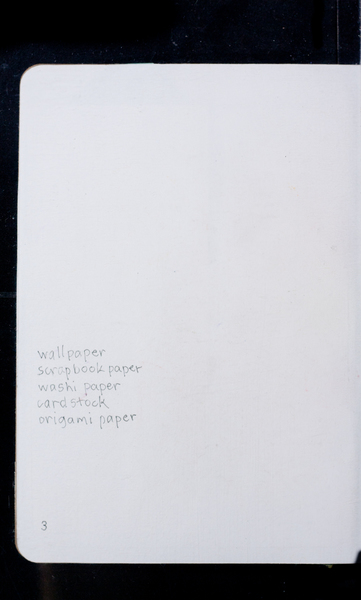 wallpaper
scrapbook paper
washi paper
cardstock
origami paper
3